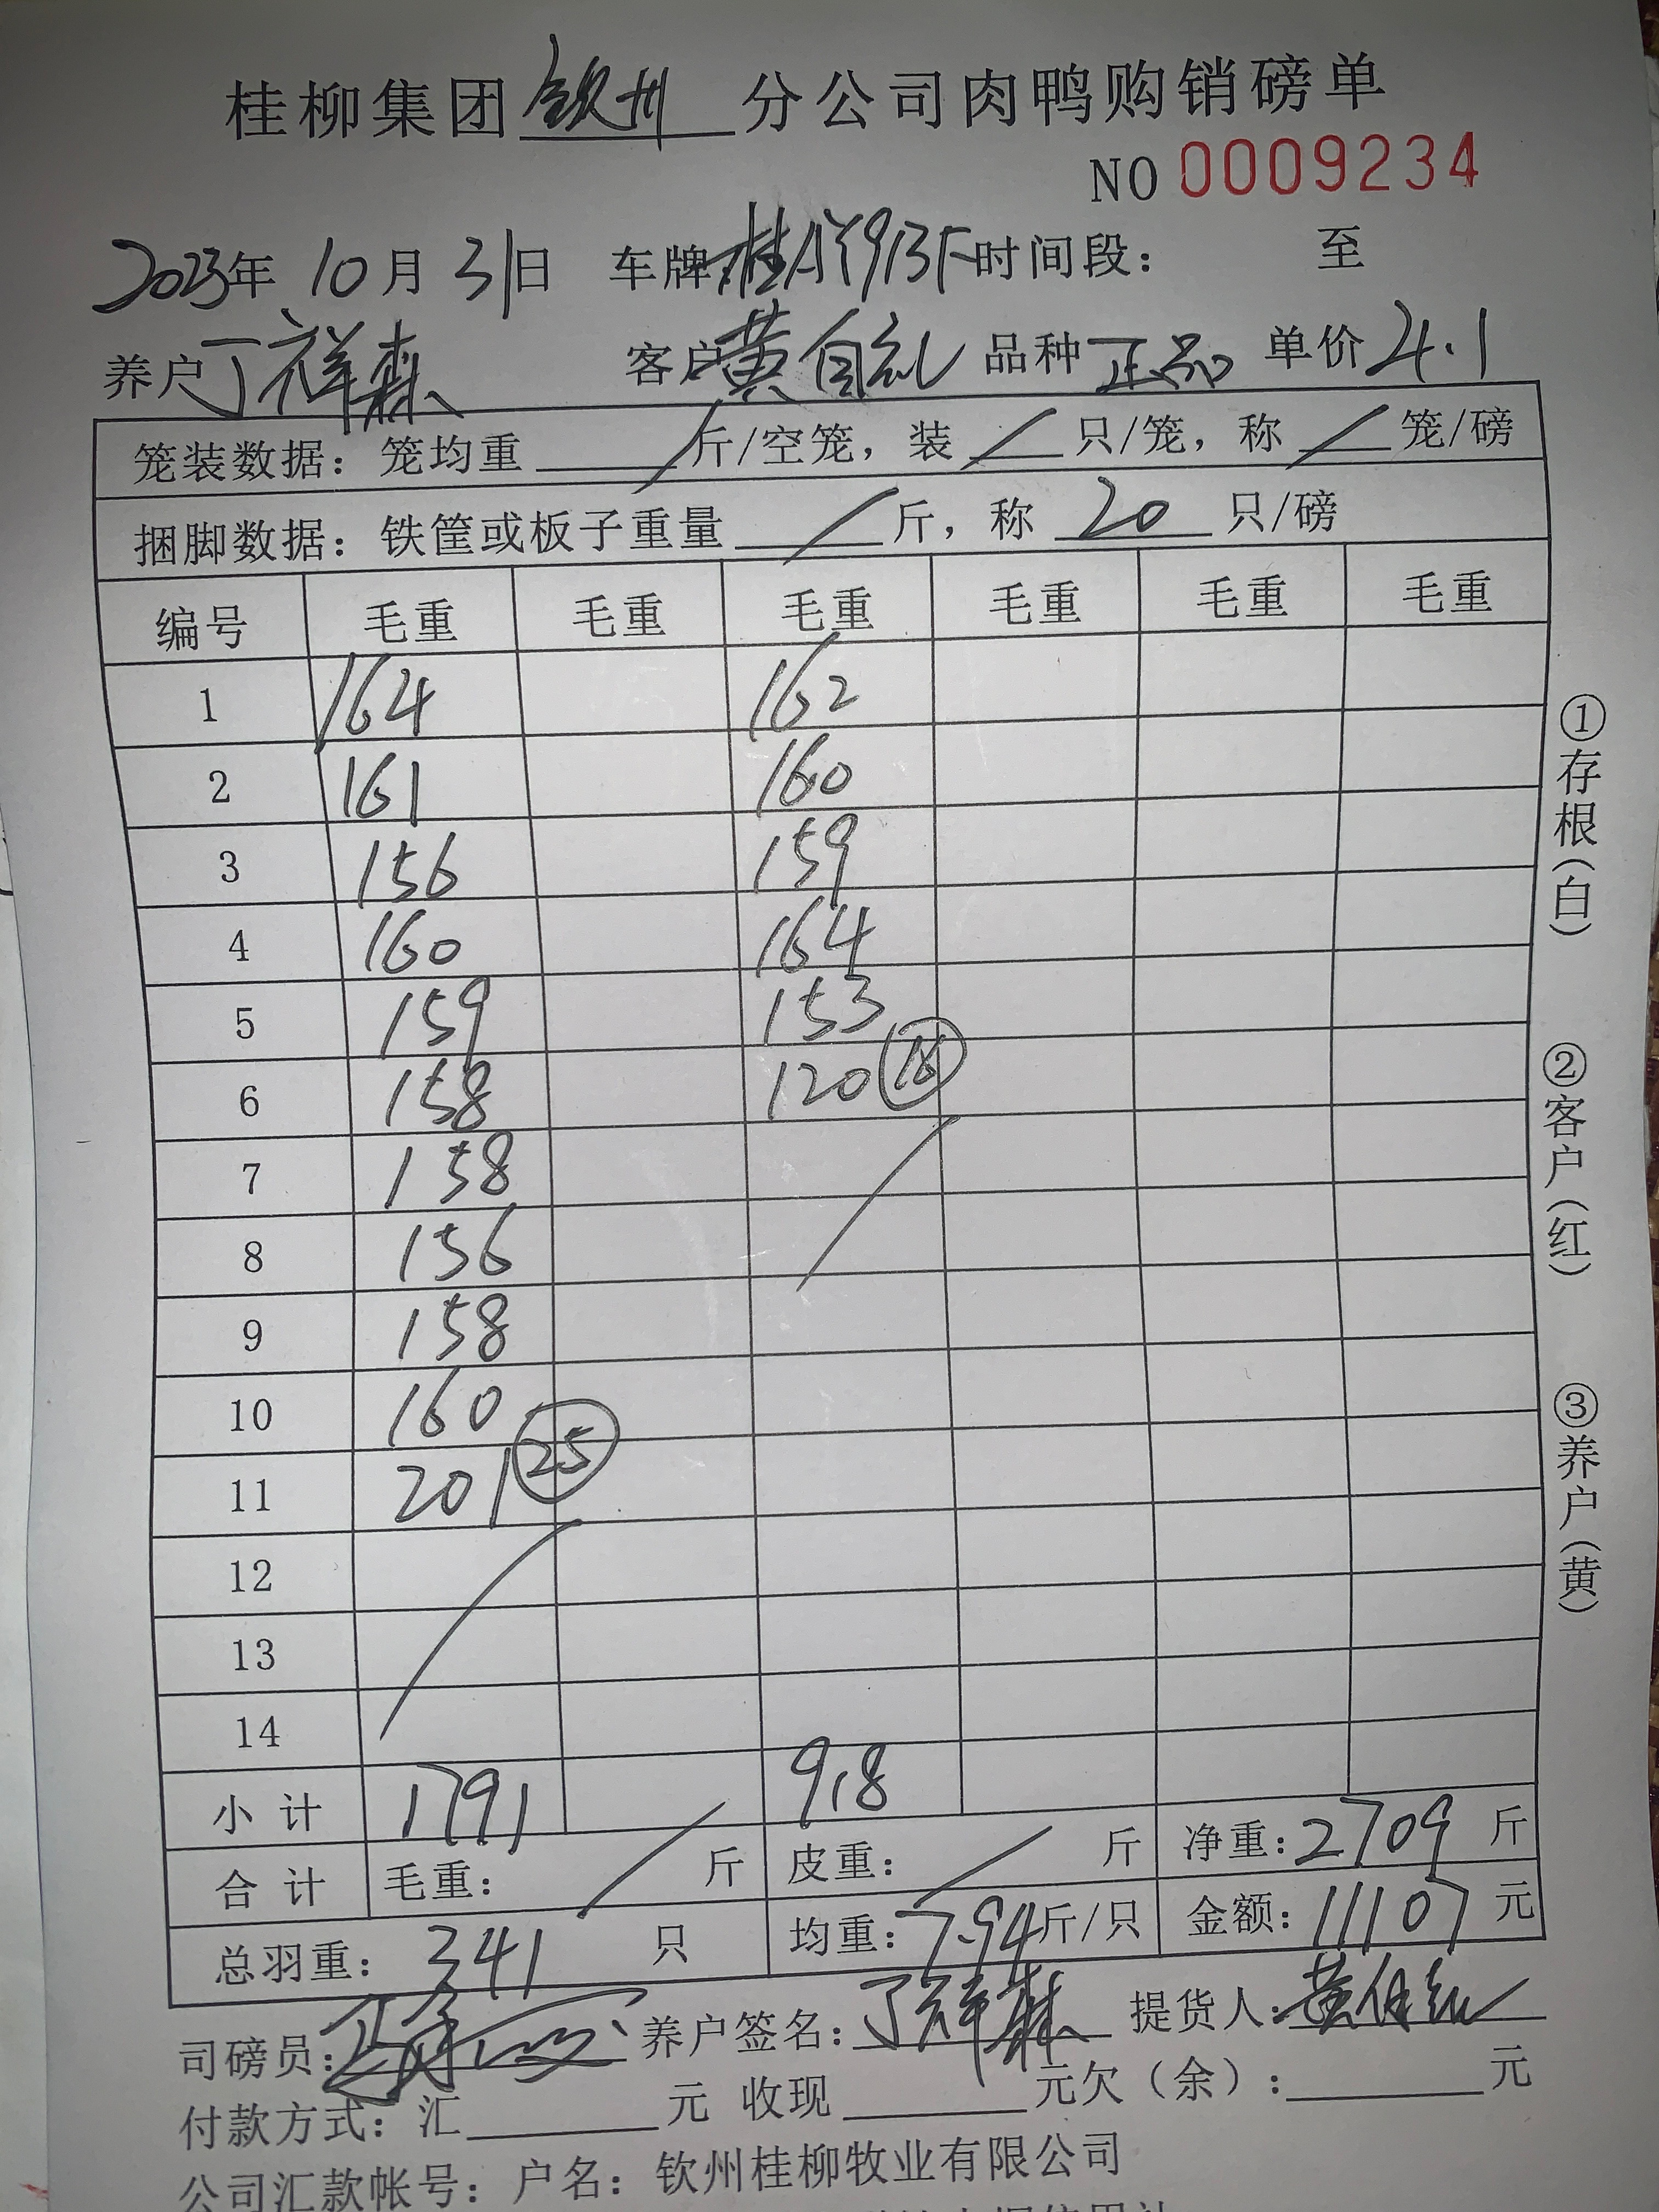 桂柳集团 钦州 分公司肉鸭购销磅单
NO 0009234
2023年 10月 31日 车牌 时间段： 至
养户 丁祥森 客户 黄自礼 品种 正品 单价 4.1
笼装数据：笼均重 / 斤/空笼，装 / 只/笼，称 / 笼/磅
捆脚数据：铁筐或板子重量 / 斤，称 20 只/磅
编号 毛重 毛重 毛重 毛重 毛重 毛重
1 164 162
2 161 160
3 156 159
4 160 164
5 159 153
6 158 120
7 158
8 156
9 158
10 160
11 201 25
12
13
14
小计 1791 918
合计 毛重： / 斤 皮重： / 斤 净重：2709 斤
总羽重：341 只 均重：7.94斤/只 金额：11107元
司磅员： 养户签名：丁祥森 提货人：
付款方式：汇 元 收现 元欠（余）： 元
公司汇款帐号：户名：钦州桂柳牧业有限公司
①存根（白）
②客户（红）
③养户（黄）